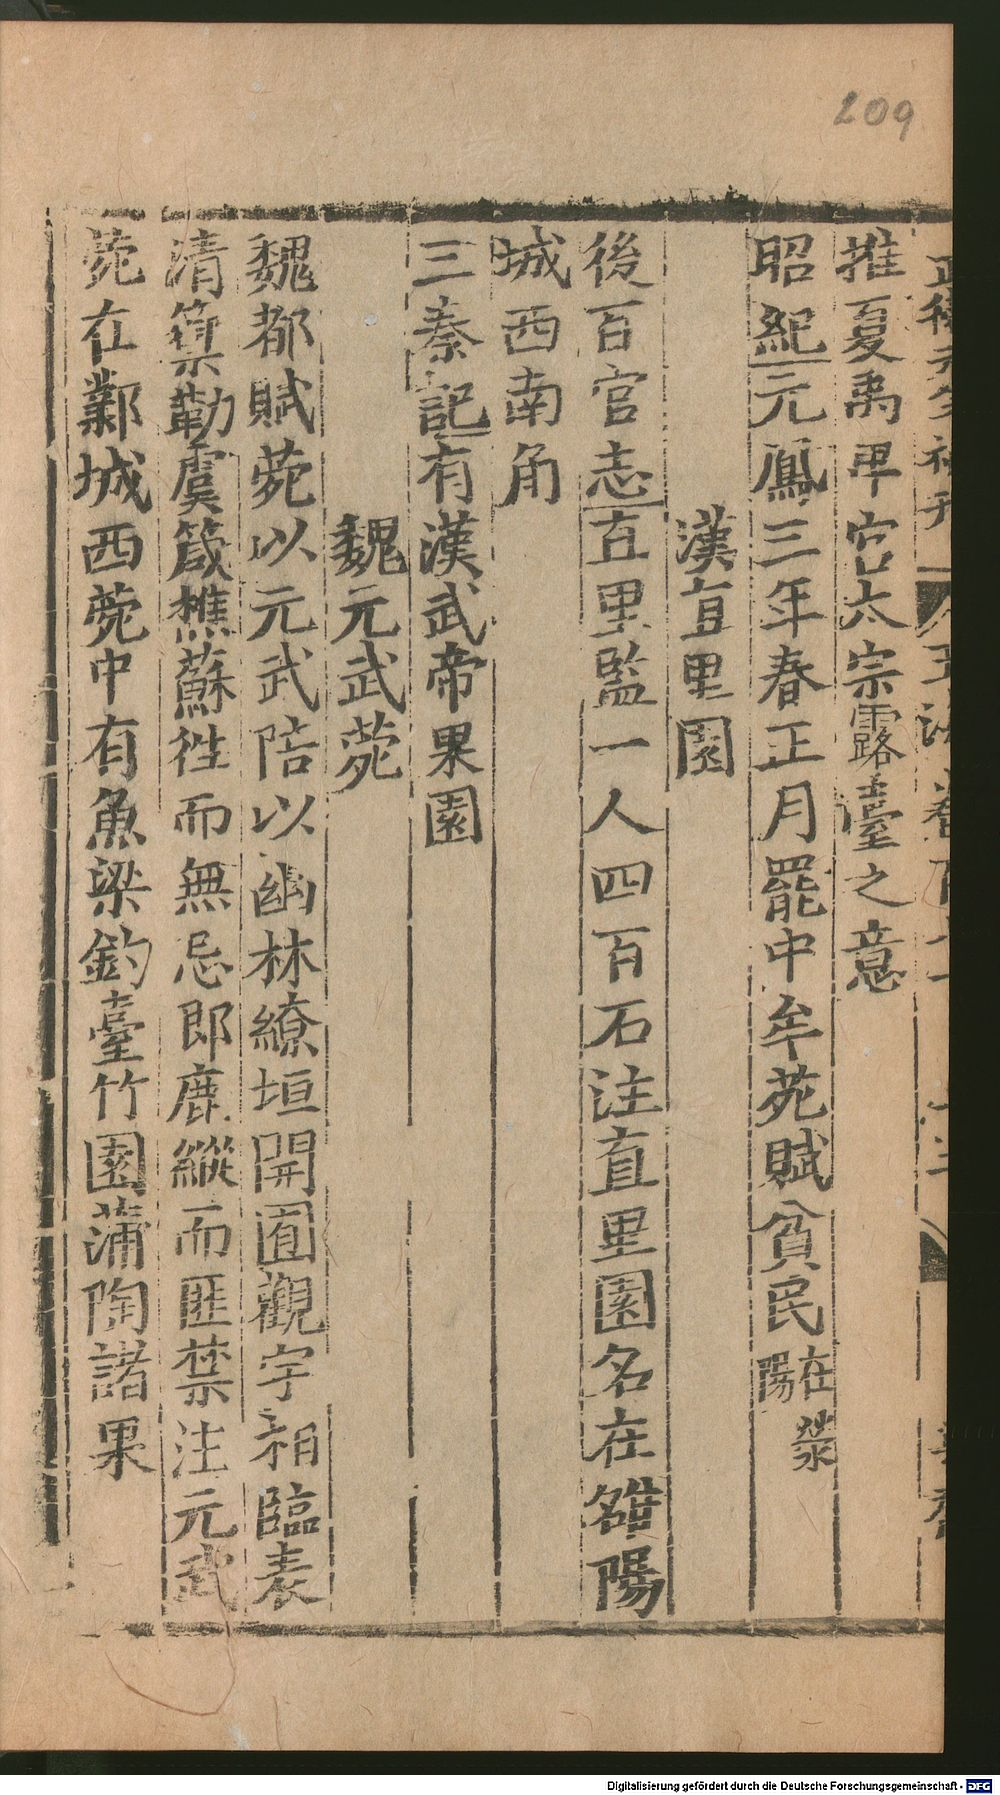 209
推夏禹卑宮太宗露臺之意
昭紀元鳳三年春正月罷中牟苑賦貧民在滎陽
漢直里園
後百官志直里監一人四百石注直里園名在雒陽
城西南角
三秦記有漢武帝果園
魏元武菀
魏都賦菀以元武陪以幽林繚垣開囿觀宇相臨表
清籞勒虞箴樵蘇徃而無忌即鹿縱而匪禁注元武
菀在鄴城西菀中有魚梁釣臺竹園蒲陶諸果
Digitalisierung gefördert durch die Deutsche Forschungsgemeinschaft - DFG